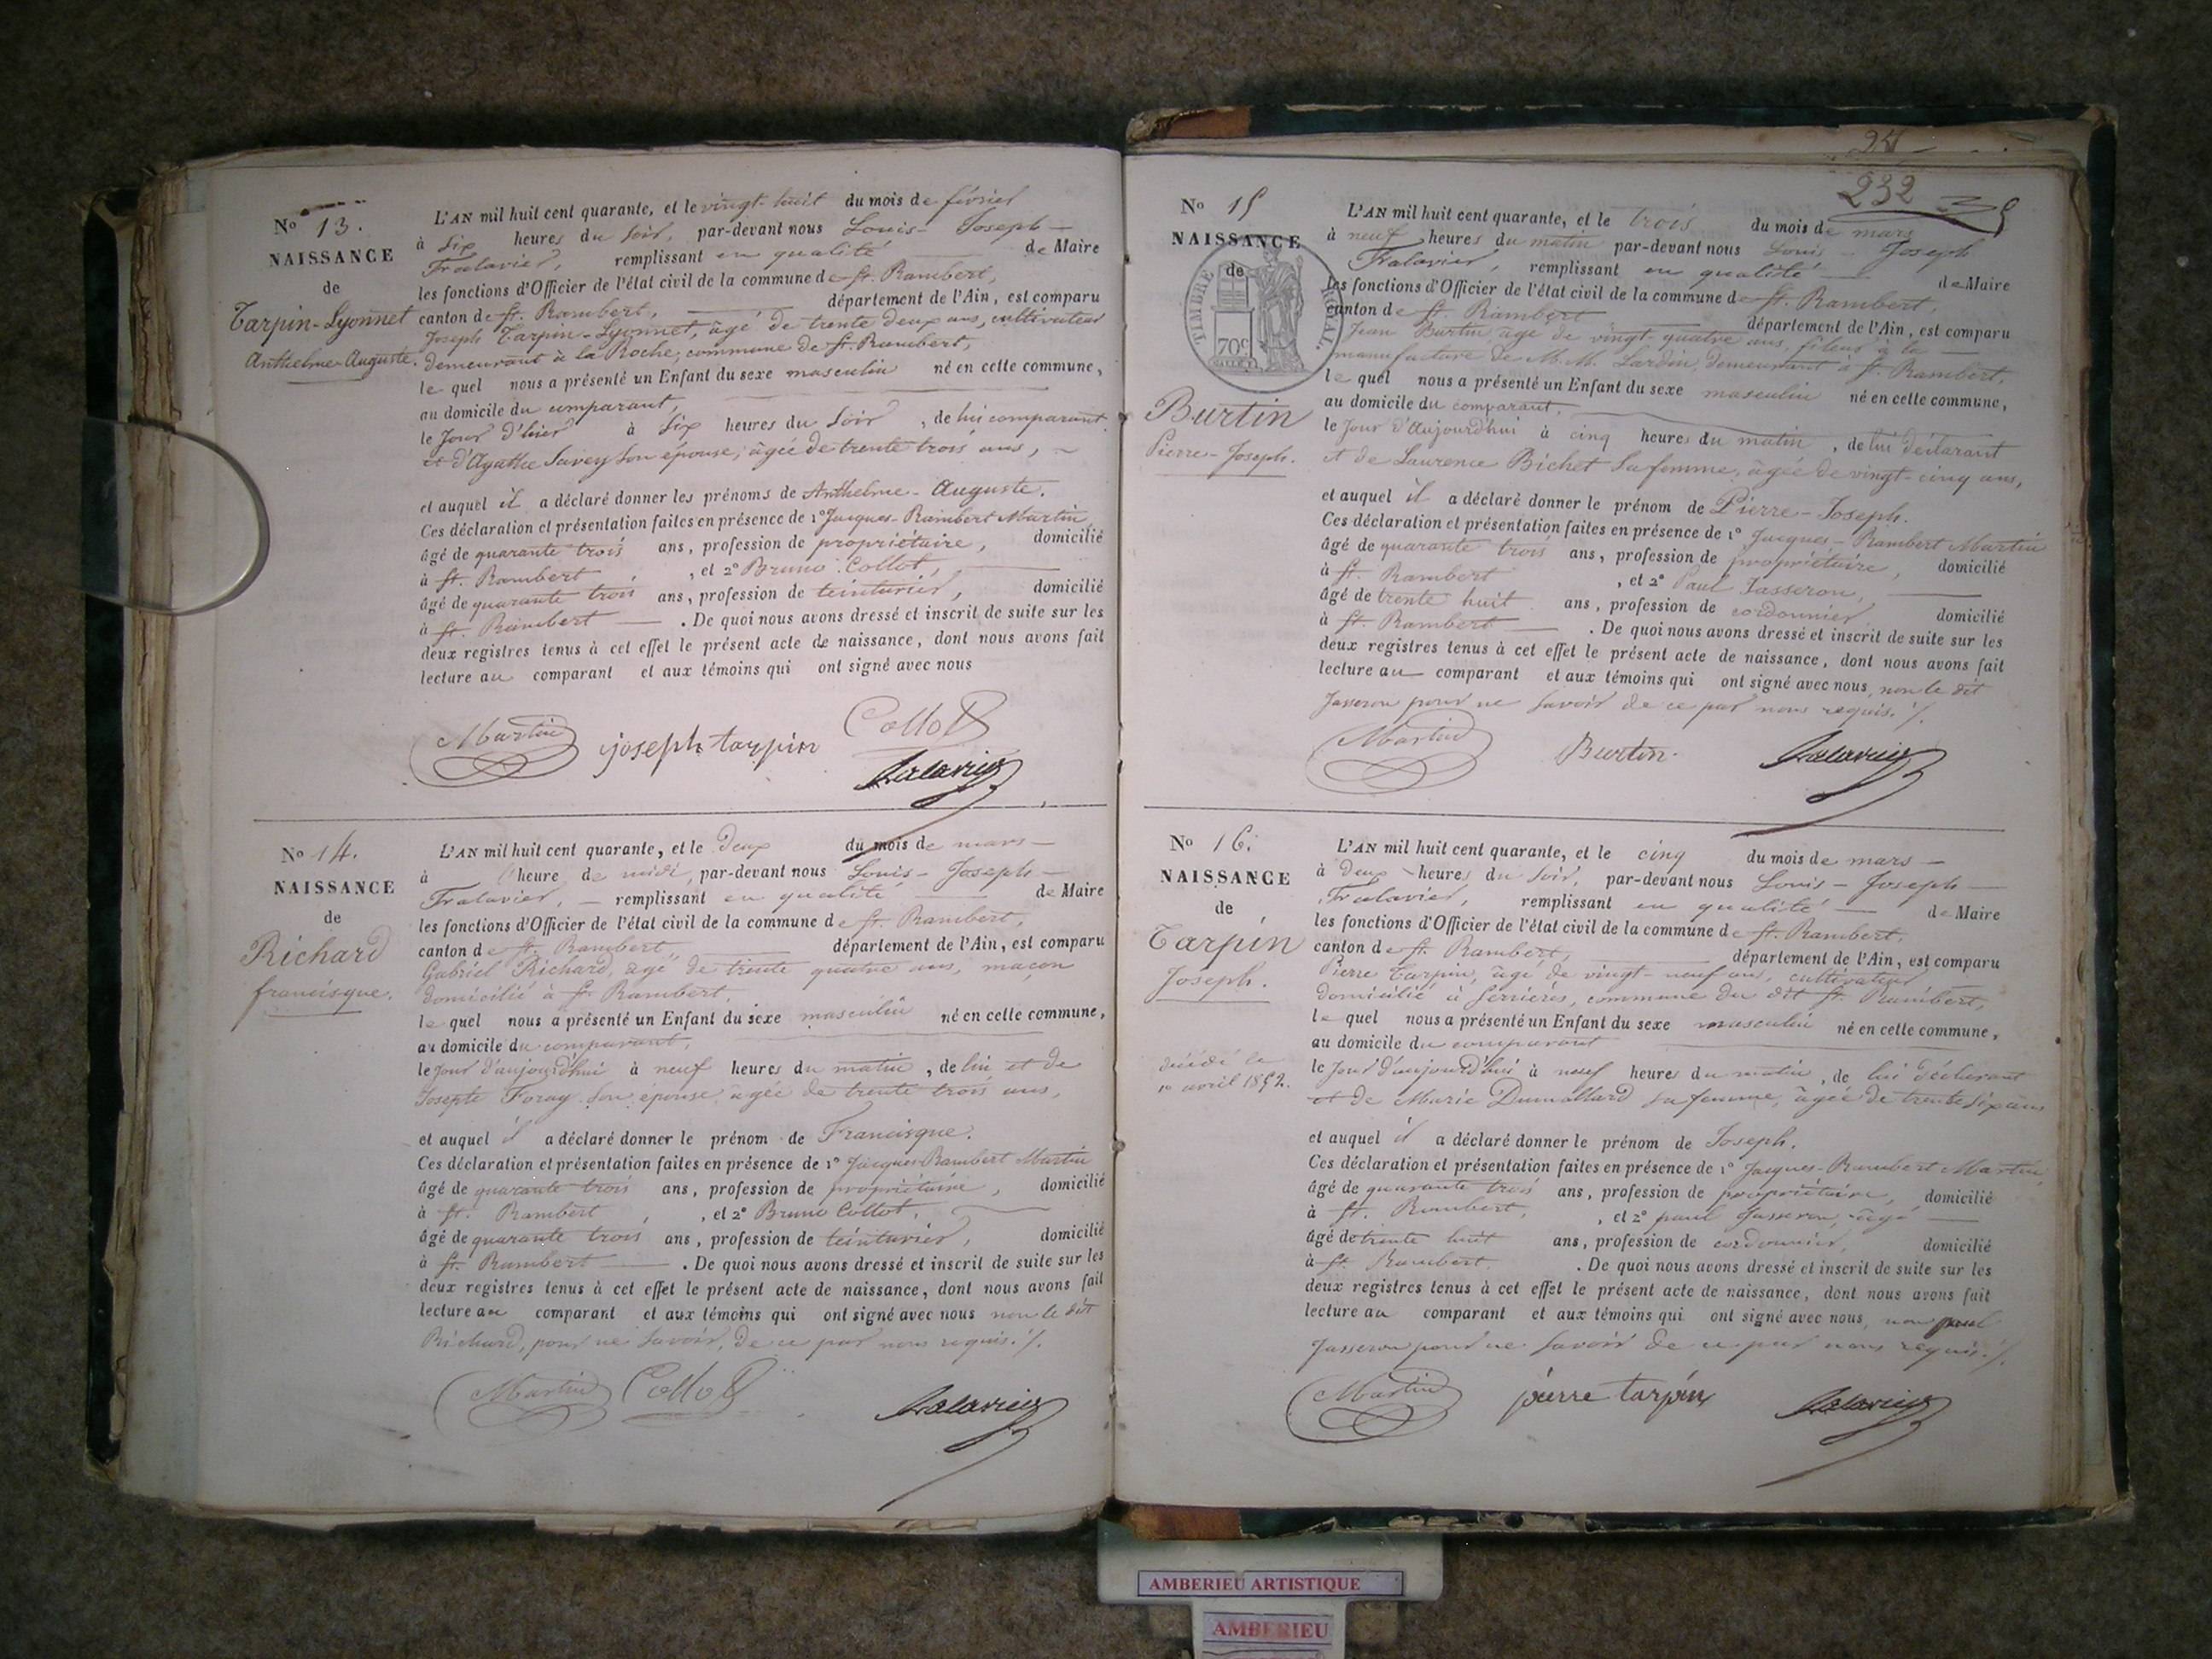 No 13.
NAISSANCE
de
Tarpin-Lyonnet
Anthelme-Auguste.
L'AN mil huit cent quarante, et le vingt-huit du mois de février
à six heures du soir, par-devant nous Louis-Joseph
remplissant en qualité de Maire
les fonctions d'Officier de l'état civil de la commune de St. Rambert,
canton de St. Rambert, département de l'Ain, est comparu
Joseph Tarpin-Lyonnet, âgé de trente deux ans, cultivateur
demeurant à la Roche, commune de St. Rambert,
le quel nous a présenté un Enfant du sexe masculin né en cette commune,
au domicile du comparant,
le Jour d'hier à six heures du soir, de lui comparant
et d'Agathe Savey son épouse, âgée de trente trois ans,
et auquel il a déclaré donner les prénoms de Anthelme-Auguste.
Ces déclaration et présentation faites en présence de 1º Jacques-Rambert Martin
âgé de quarante trois ans, profession de propriétaire, domicilié
à St. Rambert, et 2º Bruno Collot,
âgé de quarante trois ans, profession de teinturier, domicilié
à St. Rambert. De quoi nous avons dressé et inscrit de suite sur les
deux registres tenus à cet effet le présent acte de naissance, dont nous avons fait
lecture au comparant et aux témoins qui ont signé avec nous
Martin joseph tarpin Collot
No 14.
NAISSANCE
de
Richard
francisque.
L'AN mil huit cent quarante, et le deux du mois de mars
à heure de midi, par-devant nous Louis-Joseph
remplissant en qualité de Maire
les fonctions d'Officier de l'état civil de la commune de St. Rambert,
canton de St. Rambert, département de l'Ain, est comparu
Gabriel Richard, âgé de trente quatre ans, maçon
domicilié à St. Rambert,
le quel nous a présenté un Enfant du sexe masculin né en cette commune,
au domicile du comparant,
le Jour d'aujourd'hui à neuf heures du matin, de lui et de
Josephte Foray son épouse âgée de trente trois ans,
et auquel il a déclaré donner le prénom de Francisque.
Ces déclaration et présentation faites en présence de 1º Jacques Rambert Martin
âgé de quarante trois ans, profession de propriétaire, domicilié
à St. Rambert, et 2º Bruno Collot,
âgé de quarante trois ans, profession de teinturier, domicilié
à St. Rambert. De quoi nous avons dressé et inscrit de suite sur les
deux registres tenus à cet effet le présent acte de naissance, dont nous avons fait
lecture au comparant et aux témoins qui ont signé avec nous non le dit
Richard, pour ne savoir, de ce par nous requis./.
Martin Collot
24
232
No 15
NAISSANCE
de
TIMBRE ROYAL
70c
Burtin
Pierre-Joseph.
L'AN mil huit cent quarante, et le trois du mois de mars
à neuf heures du matin par-devant nous Louis-Joseph
remplissant en qualité de Maire
les fonctions d'Officier de l'état civil de la commune de St. Rambert,
canton de St. Rambert département de l'Ain, est comparu
Jean Burtin, âgé de vingt-quatre ans, fileur à la
manufacture de M.M. Sardin, demeurant à St. Rambert,
le quel nous a présenté un Enfant du sexe masculin né en cette commune,
au domicile du comparant,
le Jour d'Aujourd'hui à cinq heures du matin, de lui déclarant
et de Laurence Bichet sa femme, âgée de vingt-cinq ans,
et auquel il a déclaré donner le prénom de Pierre-Joseph.
Ces déclaration et présentation faites en présence de 1º Jacques-Rambert Martin
âgé de quarante trois ans, profession de propriétaire, domicilié
à St. Rambert, et 2º Paul Jasseron,
âgé de trente huit ans, profession de cordonnier domicilié
à St. Rambert. De quoi nous avons dressé et inscrit de suite sur les
deux registres tenus à cet effet le présent acte de naissance, dont nous avons fait
lecture au comparant et aux témoins qui ont signé avec nous, non le dit
Jasseron pour ne savoir de ce par nous requis./.
Martin Burtin
No 16.
NAISSANCE
de
Tarpin
Joseph.
décédé le
1er avril 1852.
L'AN mil huit cent quarante, et le cinq du mois de mars
à deux heures du soir, par-devant nous Louis-Joseph
remplissant en qualité de Maire
les fonctions d'Officier de l'état civil de la commune de St. Rambert,
canton de St. Rambert, département de l'Ain, est comparu
Pierre Tarpin, âgé de vingt-neuf ans, cultivateur
domicilié à Serrières, commune du dit St. Rambert,
le quel nous a présenté un Enfant du sexe masculin né en cette commune,
au domicile du comparant
le Jour d'aujourd'hui à neuf heures du matin, de lui déclarant
et de Marie Dumollard sa femme, âgée de trente six ans
et auquel il a déclaré donner le prénom de Joseph.
Ces déclaration et présentation faites en présence de 1º Jacques-Rambert Martin,
âgé de quarante trois ans, profession de propriétaire, domicilié
à St. Rambert, et 2º paul Jasseron, âgé
âgé de trente huit ans, profession de cordonnier, domicilié
à St. Rambert. De quoi nous avons dressé et inscrit de suite sur les
deux registres tenus à cet effet le présent acte de naissance, dont nous avons fait
lecture au comparant et aux témoins qui ont signé avec nous, non paul
Jasseron pour ne savoir de ce par nous requis./.
Martin pierre tarpin
AMBERIEU ARTISTIQUE
AMBERIEU